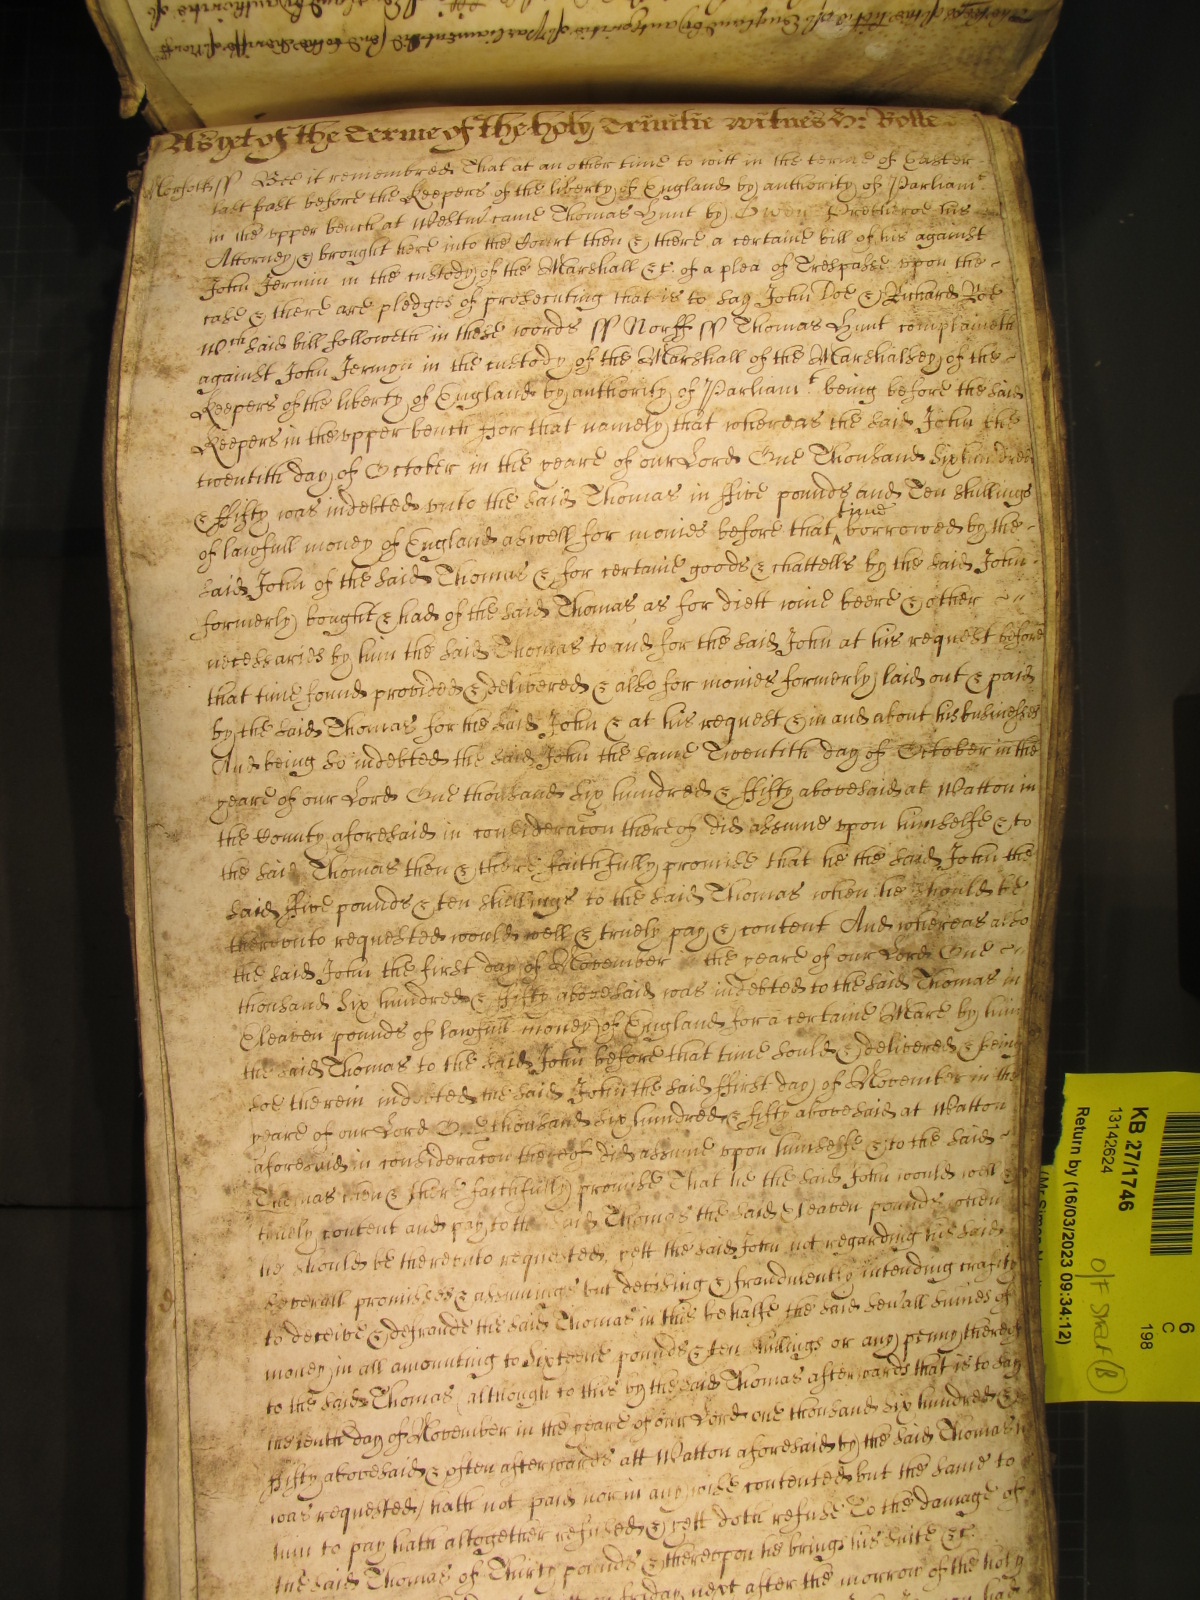 As yet of the Terme of the holy Trinitie witnes H: Rolle
Norfolk ss Bee it remembred That at an other time to witt in the terme of Easter
last past before the Keepers of the liberty of England by authority of Parliamt
in the upper bench at Westmr came Thomas Hunt by Owen Pretheroe his
Attorney & brought here into the Court then & there a certaine bill of his against
John Jermin in the custody of the Marshall &c. of a plea of Trespasse upon the
case & there are pledges of prosecuting that is to say John Doe & Richard Roe
wch said bill followeth in these words ss Norff ss Thomas Hunt complaineth
against John Jermyn in the custody of the Marshall of the Marshalsey of the
Keepers of the liberty of England by authority of Parliamt being before the said
Keepers in the upper bench For that namely that whereas the said John the
twentith day of October in the yeare of our Lord One Thousand six hundred
& ffifty was indebted unto the said Thomas in ffive pounds and Ten shillings
of lawfull money of England aswell for monies before that time borrowed by the
said John of the said Thomas & for certaine goods & chattells by the said John
formerly bought & had of the said Thomas as for diett wine beere & other
necessaries by him the said Thomas to and for the said John at his request before
that time found provided & delivered & also for monies formerly laid out & paid
by the said Thomas for the said John & at his request & in and about his businesses
And being so indebted the said John the same Twentith day of October in the
yeare of our Lord One thousand six hundred & ffifty abovesaid at Watton in
the County aforesaid in consideracon thereof did assume upon himselfe & to
the said Thomas then & there faithfully promise that he the said John the
said ffive pounds & ten shillings to the said Thomas when he should be
thereunto requested would well & truely pay & content And whereas also
the said John the first day of November the yeare of our Lord One
thousand six hundred & ffifty abovesaid was indebted to the said Thomas in
Eleaven pounds of lawfull money of England for a certaine Mare by him
the said Thomas to the said John before that time sould & delivered & being
soe therein indebted the said John the said ffirst day of November in the
yeare of our Lord One thousand six hundred & fifty abovesaid at Watton
aforesaid in consideracon thereof did assume upon himselfe & to the said
Thomas then & there faithfully promise That he the said John would well &
truely content and pay to the said Thomas the said Eleaven pounds when
he should be thereunto requested, yett the said John not regarding his said
severall promises & assumings but devising & fraudulently intending craftily
to deceive & defraude the said Thomas in this behalfe the said sev'all summes of
money in all amounting to sixteene pounds & ten shillings or any penny thereof
to the said Thomas (although to this by the said Thomas afterwards that is to say
the tenth day of November in the yeare of our Lord one thousand six hundred &
ffifty abovesaid & often afterwards att Watton aforesaid by the said Thomas
was requested) hath not paid nor in any wise contented but the same to
him to pay hath altogether refused & yett doth refuse To the damage of
the said Thomas of Thirty pounds & thereupon he brings his suite &c.
friday next after the morrow of the holy
KB 27/1746
13142624
Return by (16/03/2023 09:34:12)
6
C
198
O/F Straf (B)